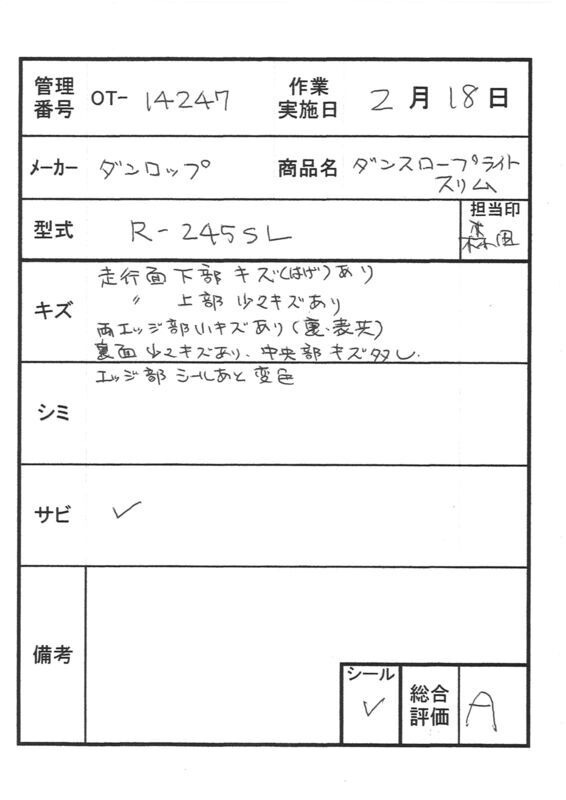 管理番号 OT- 14247 作業実施日 2月18日
メーカー ダンロップ 商品名 ダンスロープライト
スリム
型式 R-245SL 担当印
森田
キズ
走行面 下部 キズ(はげ)あり
〃 上部 少々キズあり
両エッジ部小キズあり(裏、表共)
裏面 少々キズあり、中央部 キズ多し.
シミ
エッジ部 シールあと 変色
サビ ✓
備考
シール ✓ 総合評価 A